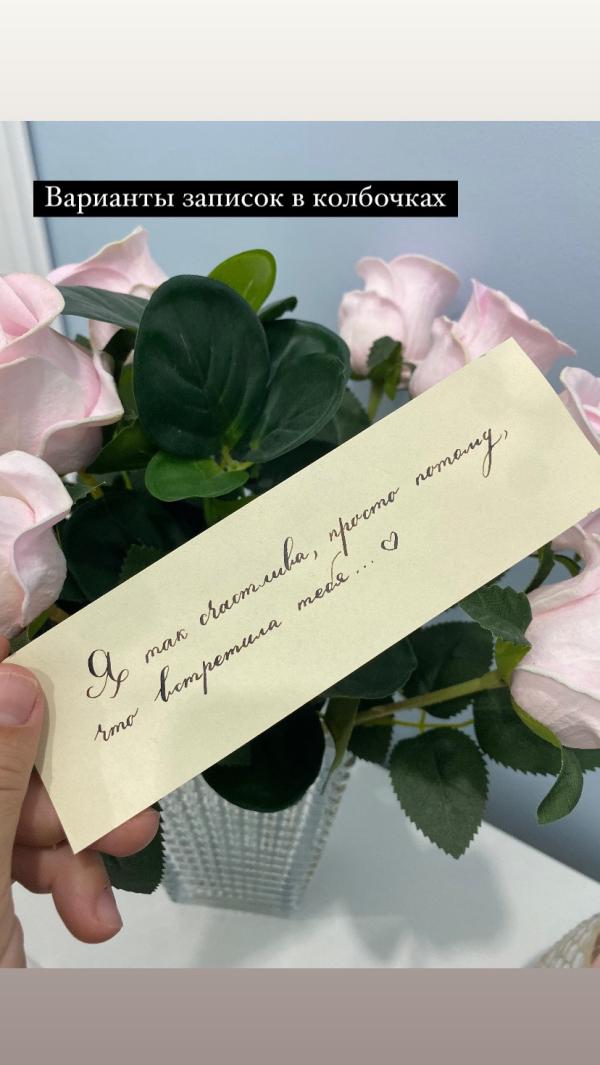 Варианты записок в колбочках
Я так счастлива, просто потому,
что встретила тебя... ♡